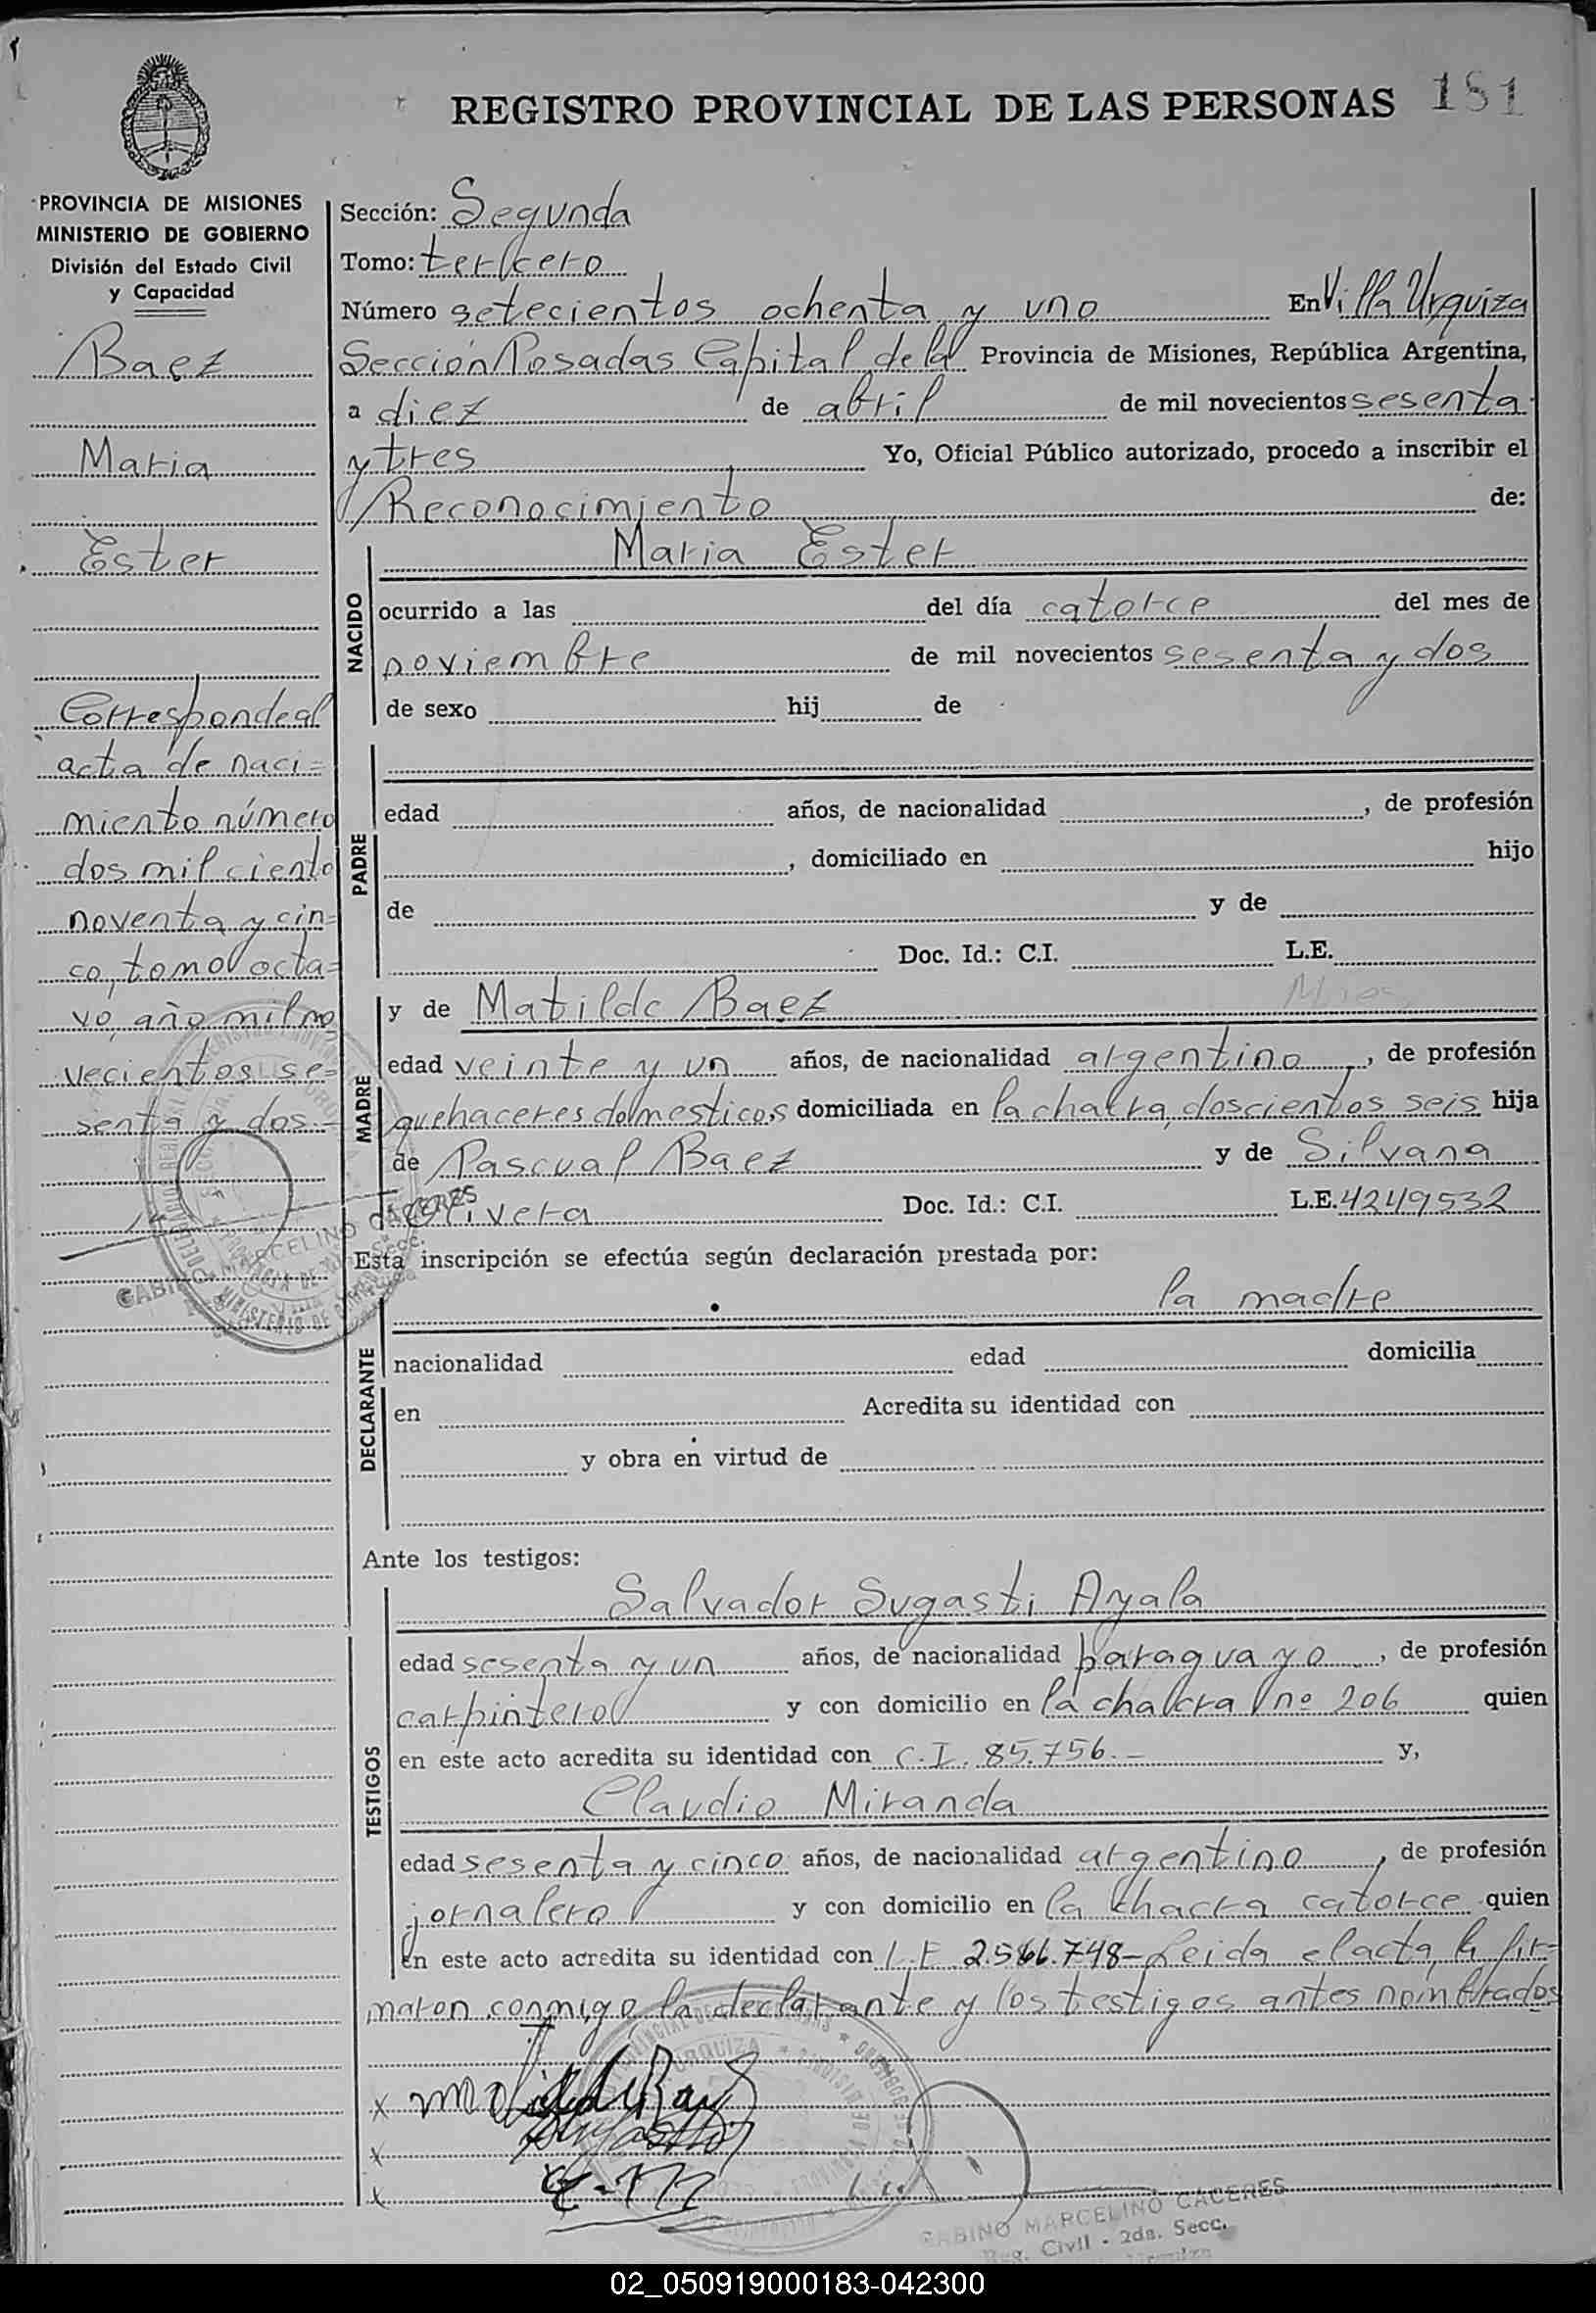 REGISTRO PROVINCIAL DE LAS PERSONAS 181
PROVINCIA DE MISIONES
MINISTERIO DE GOBIERNO
División del Estado Civil
y Capacidad
Baez
Maria
Ester
Corresponde al
acta de naci=
miento número
dos mil ciento
noventa y cin=
co, tomo octa=
vo, año mil no
vecientos se=
senta y dos.-
Sección: Segunda
Tomo: tercero
Número setecientos ochenta y uno En Villa Urquiza
Sección Posadas Capital de la Provincia de Misiones, República Argentina,
a diez de abril de mil novecientos sesenta
y tres Yo, Oficial Público autorizado, procedo a inscribir el
Reconocimiento de:
NACIDO
Maria Ester
ocurrido a las del día catorce del mes de
noviembre de mil novecientos sesenta y dos
de sexo hij de
PADRE
edad años, de nacionalidad , de profesión
, domiciliado en hijo
de y de
Doc. Id.: C.I. L.E.
MADRE
y de Matilde Baez
edad veinte y un años, de nacionalidad argentino, de profesión
quehaceres domesticos domiciliada en la chakra doscientos seis hija
de Pascual Baez y de Silvana
Olivera Doc. Id.: C.I. L.E. 4249532
Esta inscripción se efectúa según declaración prestada por:
DECLARANTE
la madre
nacionalidad edad domicilia
en Acredita su identidad con
y obra en virtud de
Ante los testigos:
TESTIGOS
Salvador Sugasti Ayala
edad sesenta y un años, de nacionalidad paraguayo, de profesión
carpintero y con domicilio en la chakra nº 206 quien
en este acto acredita su identidad con C.I. 85.756.- y,
Claudio Miranda
edad sesenta y cinco años, de nacionalidad argentino, de profesión
jornalero y con domicilio en la chacra catorce quien
en este acto acredita su identidad con L.E 2.566.748- Leida el acta, la fir=
maron conmigo la declarante y los testigos antes nombrados
x Matilde Baez
x Sugasti
x
GABINO MARCELINO CACERES
Reg. Civil - 2da. Secc.
02_050919000183-042300